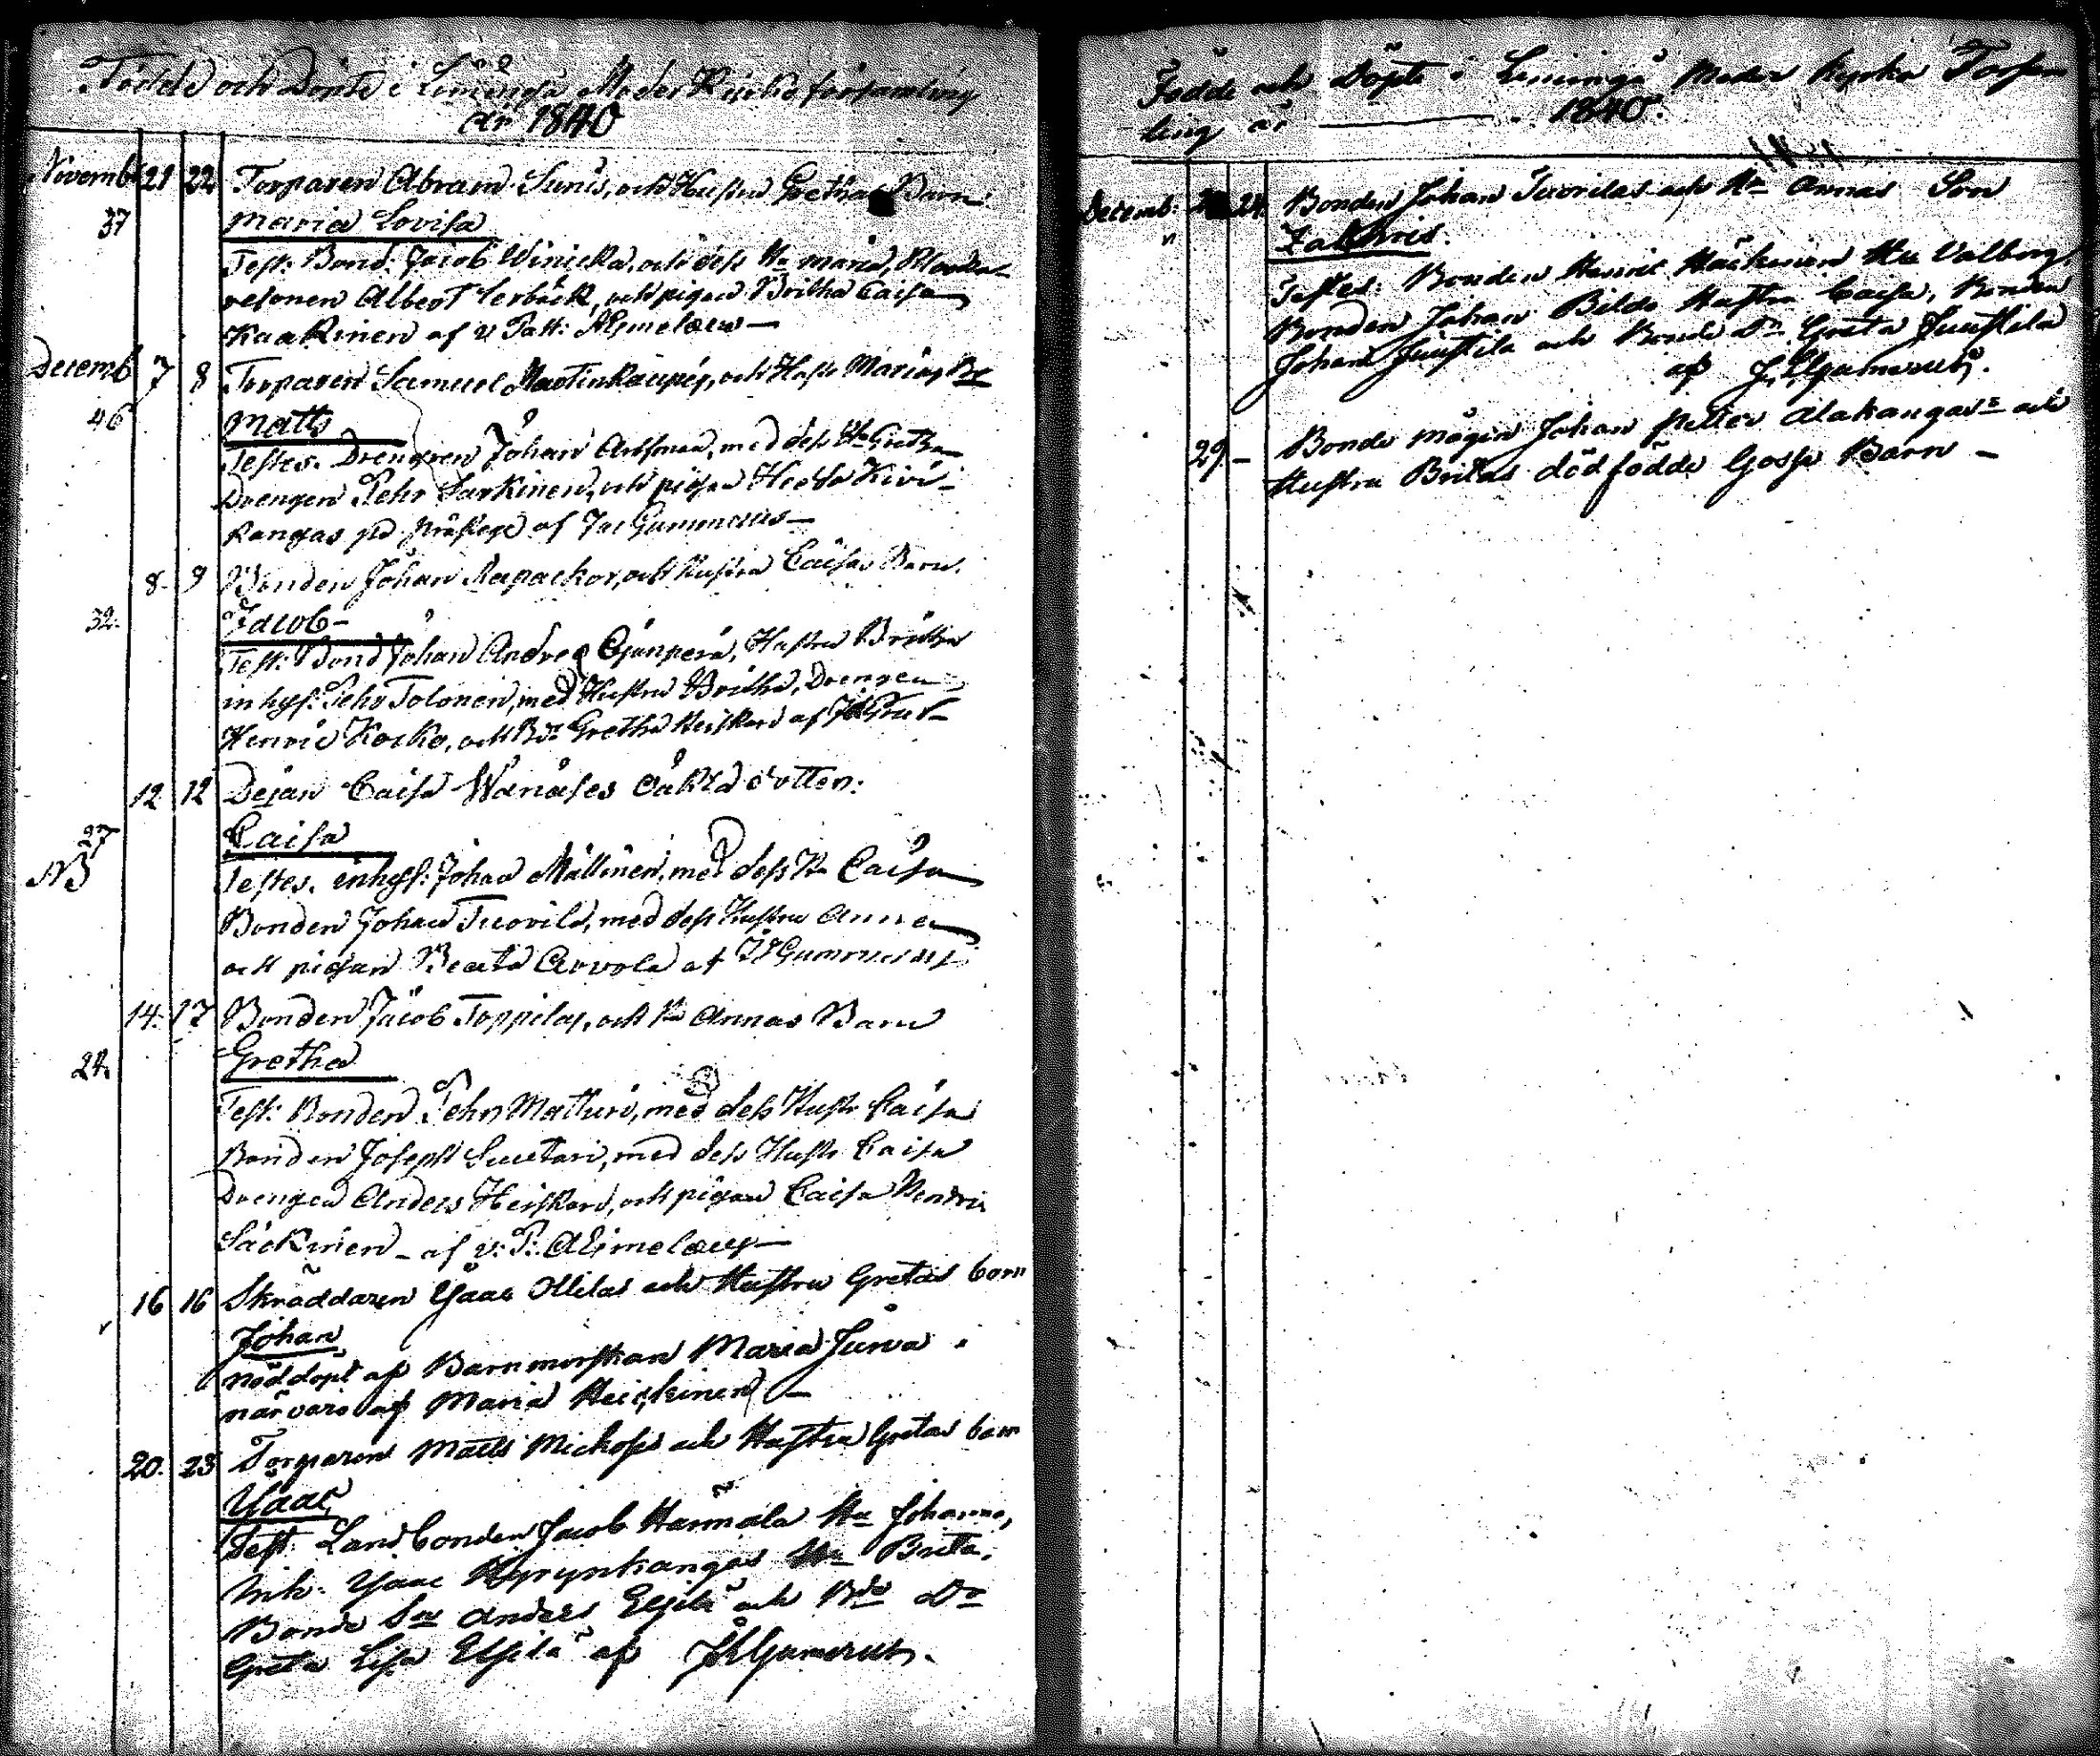 Födde och Döpte i Limingå Moder Kyrko församling
år 1840
Novemb. 21 22 Torparen Abram Sunis, och Hustru Grethas Barn
37 Maria Lovisa
Test: Bond: Jacob Winicka, och dess Hu Maria,
Albert Lerbäck, och pigan Britha Caisa
Kaakinen af v Past: Alimelæus —
Decemb 7 8 Torparen Samuel Martinkauppis, och Hustr Marias Bn
46 Matts
Testes. Drengen Johan, med dess Hu Gretha
Drengen Pehr Sarkinen, och pigan Hedda Kivi-
kangas på af Jac Gummerus —
8. 9 Bonden Johan Rapackos, och Hustru Caisas Barn.
32. Jacob —
Test: Bond Johan Andre Ojanperä, Hustru Britha
inhys: Pehr Tolonen, med Hustru Britha, Drengen
Henric Kocko, och Gretha Heiskari af
12 12 Dejan Caisa Wänäses oäkta dotter.
27 Caisa
NB
Testes. inhys: Johan Mällinen, med dess Hu Caisa
Bonden Johan Tuovila, med dess Hustru Anna
och pigan Beata Arvola af Gummerus
14. 17 Bonden Jacob Toppilas, och Hu Annas Barn
24. Gretha
Test: Bonden Pehr Matturi, med dess Hustr Caisa
Bonden Joseph Suutari, med dess Hustr Caisa
Drengen Anders Heiskari, och pigan Caisa Hendric
Säckinen — af v: P: Alimelæus —
16 16 Skräddaren Isaac Ollilas och Hustru Gretas barn
Johan
nöddöpt af Barnmorskan Maria Jurva i
närvaro af Maria Heickinen —
20. 23 Torparen Matts Mickos och Hustru Gretas barn
Isaac
Test. Landbonden Jacob Hannala Hu Johanna,
Inh. Isaac Kyrynkangas Hu Brita.
Bonde Sn Anders Elsilä och Bde Dr
Greta Lisa Elsilä af Gumerus.
Födde och Döpte i Limingå Moder Kyrko Försam
ling år — 1840.
Decemb: 24. Bonden Johan Tuovilas och Hu Annas Son
Zachris.
Testes: Bonden Henric Häckinen Hu Valborg,
Bonden Johan Bildo Hustru Caisa, Bonden
Johan Juustila och Bonde Dr Greta Juustila
af Gumerus.
29. — Bonde mågen Johan Petter Alakangas och
Hustru Britas dödfödde Gosse Barn —